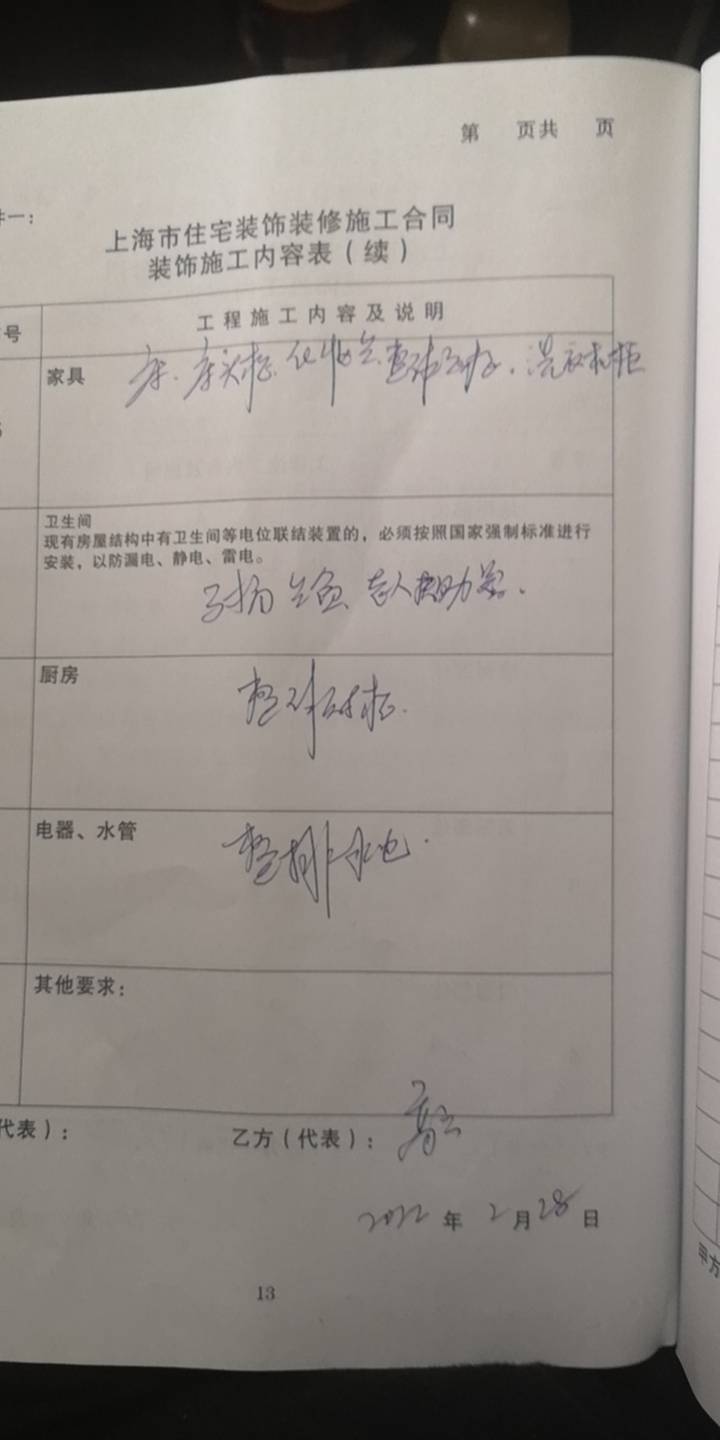 第 页共 页
件一：
上海市住宅装饰装修施工合同
装饰施工内容表（续）
号
工程施工内容及说明
家具
床、床头柜、化妆台、洗衣机柜
卫生间
现有房屋结构中有卫生间等电位联结装置的，必须按照国家强制标准进行
安装，以防漏电、静电、雷电。
老人扶助
厨房
整体
电器、水管
排水电.
其他要求：
代表）：
乙方（代表）：
2022 年 2 月 28 日
13
甲方